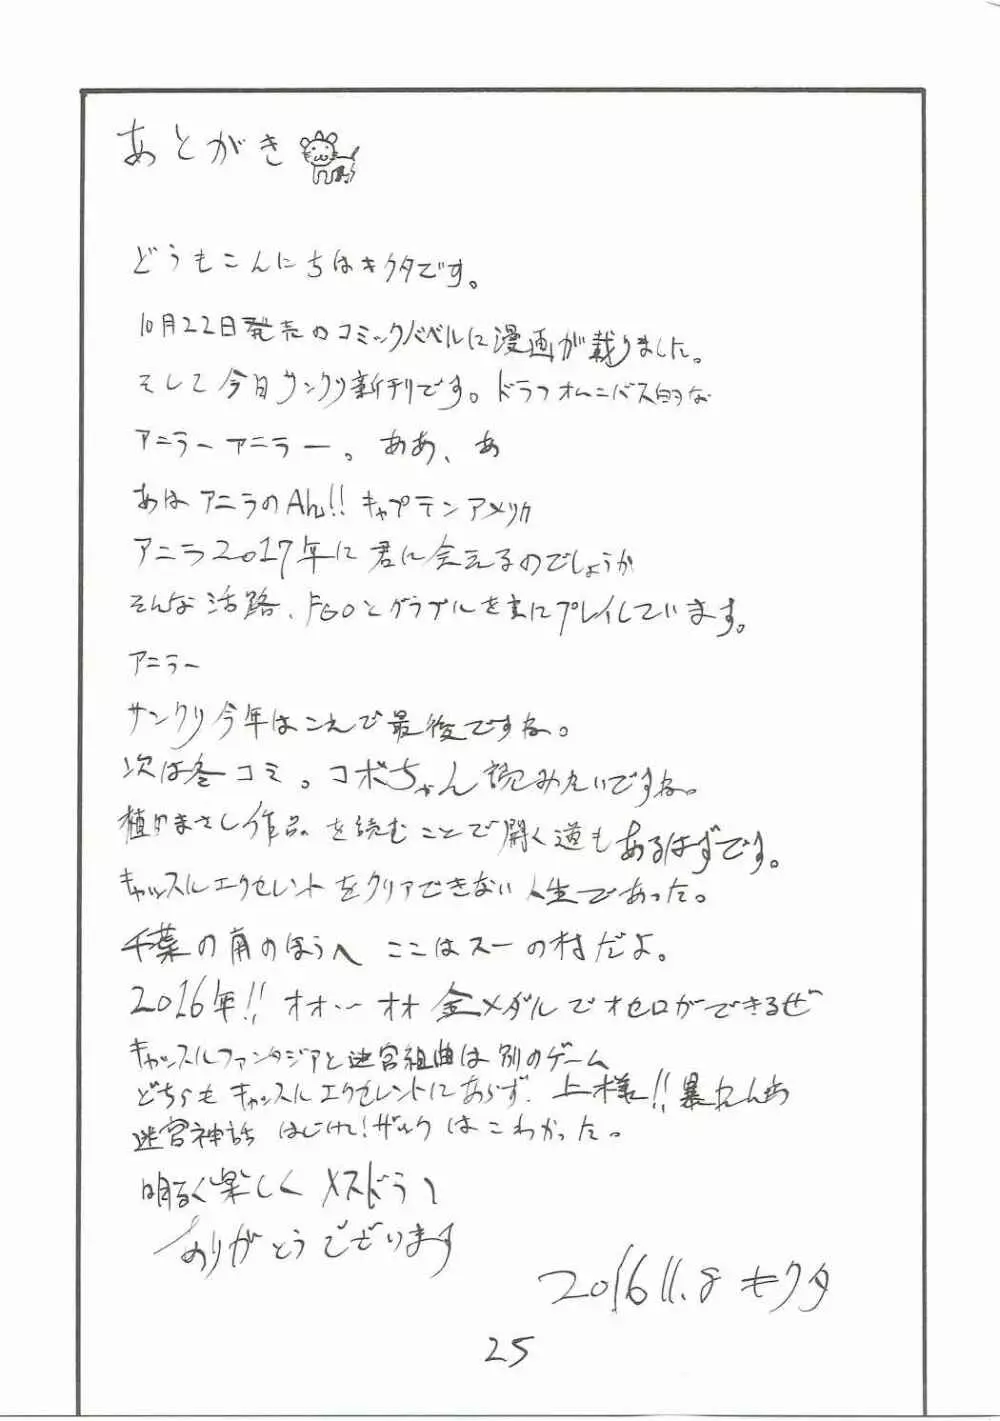 あとがき
どうもこんにちはキクタです。
10月22日発売のコミックバベルに漫画が載りました。
そして今日サンクリ新刊です。ドラフオムニバス的な
アニラーアニラー。ああ、あ
あはアニラのAh!! キャプテンアメリカ
アニラ2017年に君に会えるのでしょうか
そんな活路、FGOとグラブルを主にプレイしています。
アニラー
サンクリ今年はこれで最後ですね。
次は冬コミ。コボちゃん読みたいですね。
植田まさし作品を読むことで開く道もあるはずです。
キャッスルエクセレントをクリアできない人生であった。
千葉の南のほうへ ここはスーの村だよ。
2016年!! オオ…オオ 金メダルでオセロができるぜ
キャッスルファンタジアと迷宮組曲は別のゲーム
どちらもキャッスルエクセレントにあらず。上様!!暴れんあ
迷宮神話 はじけて!ザルクはこわかった。
明るく楽しく メスドラフ
ありがとうございます
2016 11.8 キクタ
25